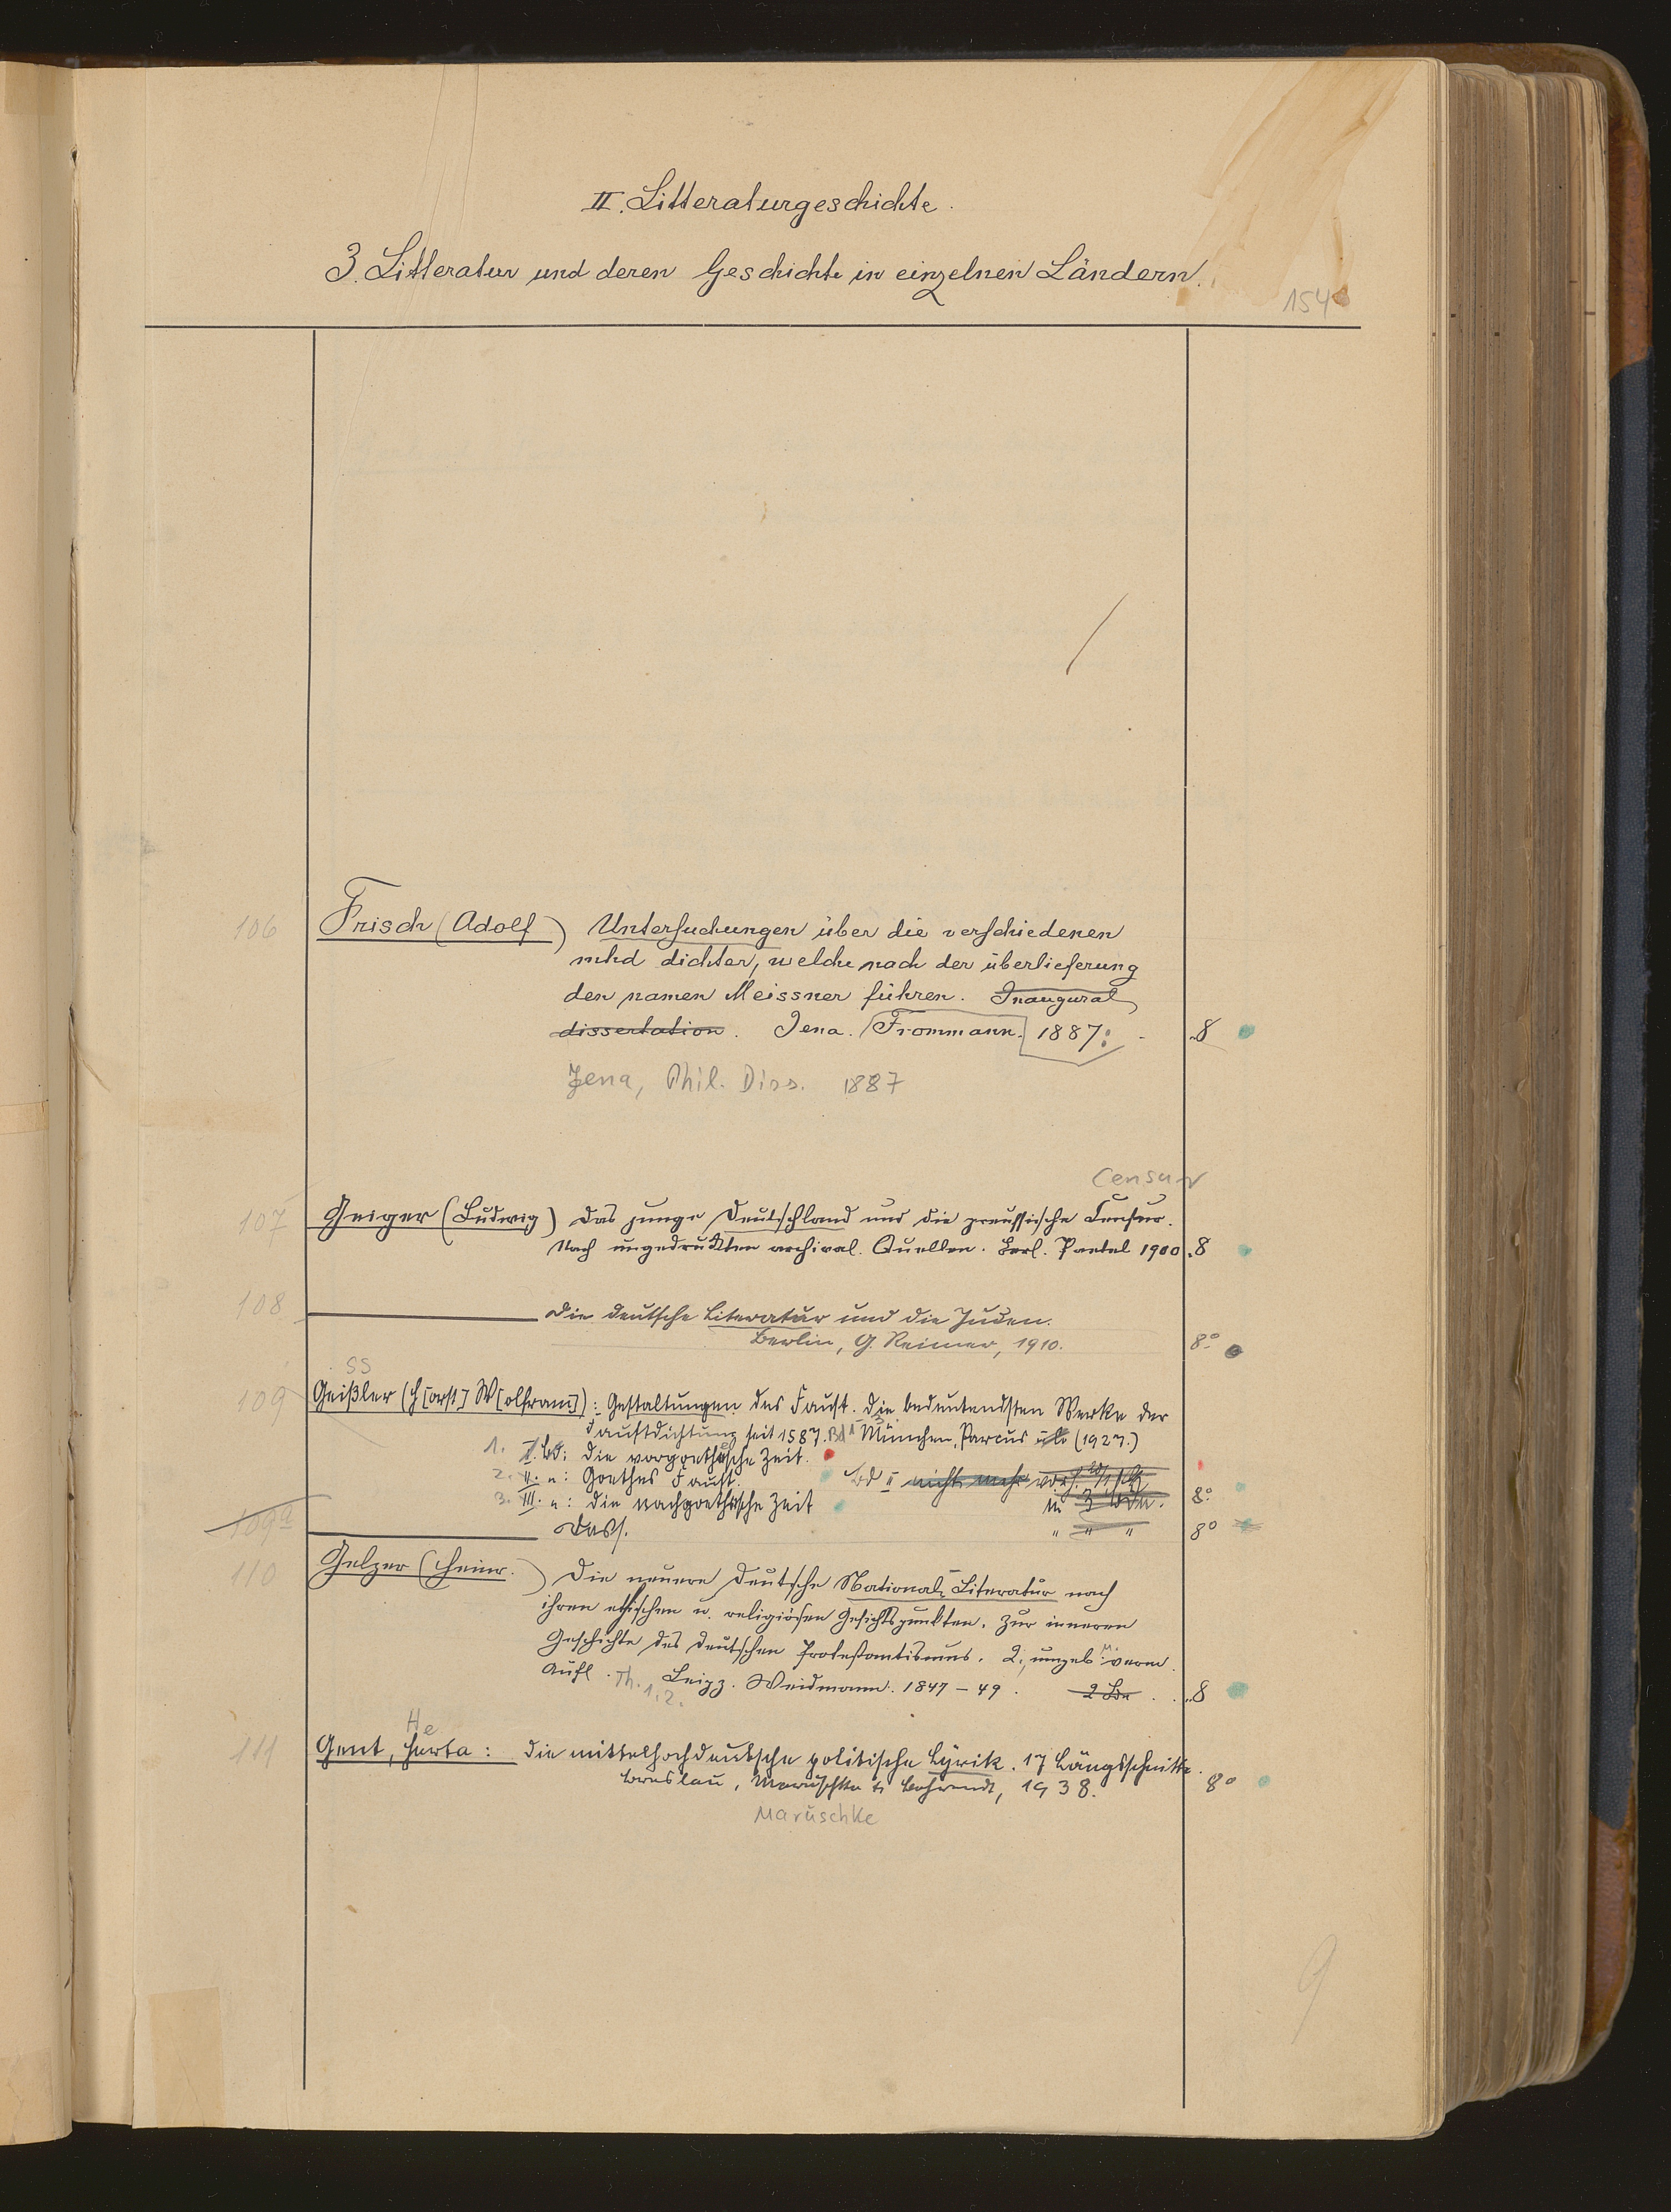 II. Litteraturgeschichte.
3. Litteratur und deren Geschichte in einzelnen Ländern.
154
106 Frisch (Adolf) Untersuchungen über die verschiedenen
mhd dichter, welche nach der überlieferung
den namen Meissner führen. Inaugural
dissertation. Jena. Frommann. 1887. 8
Jena, Phil. Diss. 1887
Censur
107 Geiger (Ludwig) Das junge Deutschland und die preussische Censur.
Nach ungedruckten archival. Quellen. Berl. Paetel 1900. 8
108 Die deutsche Literatur und die Juden.
Berlin, G. Reimer, 1910. 8°
ss
109 Geißler (H[orst] W[olfram]): Gestaltungen des Faust. Die bedeutendsten Werke der
Faustdichtung seit 1587. Bd 1-3. München, Parcus (1927.)
1. I. Bd: Die vorgoethesche Zeit.
2. II. „: Goethes Faust. Bd II nicht mehr vorh.
3. III. „: Die nachgoethesche Zeit in 3 Bdn. 8°
109a Dass. " " " 8°
110 Gelzer (Heinr.) Die neuere deutsche National-Literatur nach
ihren ethischen u. religiösen Gesichtspunkten. Zur inneren
Geschichte des deutschen Protestantismus. 2., umgeb. u. verm.
Aufl. Th. 1.2. Leipz. Weidmann. 1847-49. 2 Bde. 8
He
111 Gent, Herta: Die mittelhochdeutsche politische Lyrik. 17 Längsschnitte.
Breslau, Maruschke & Behrendt, 1938. 8°
Maruschke
9